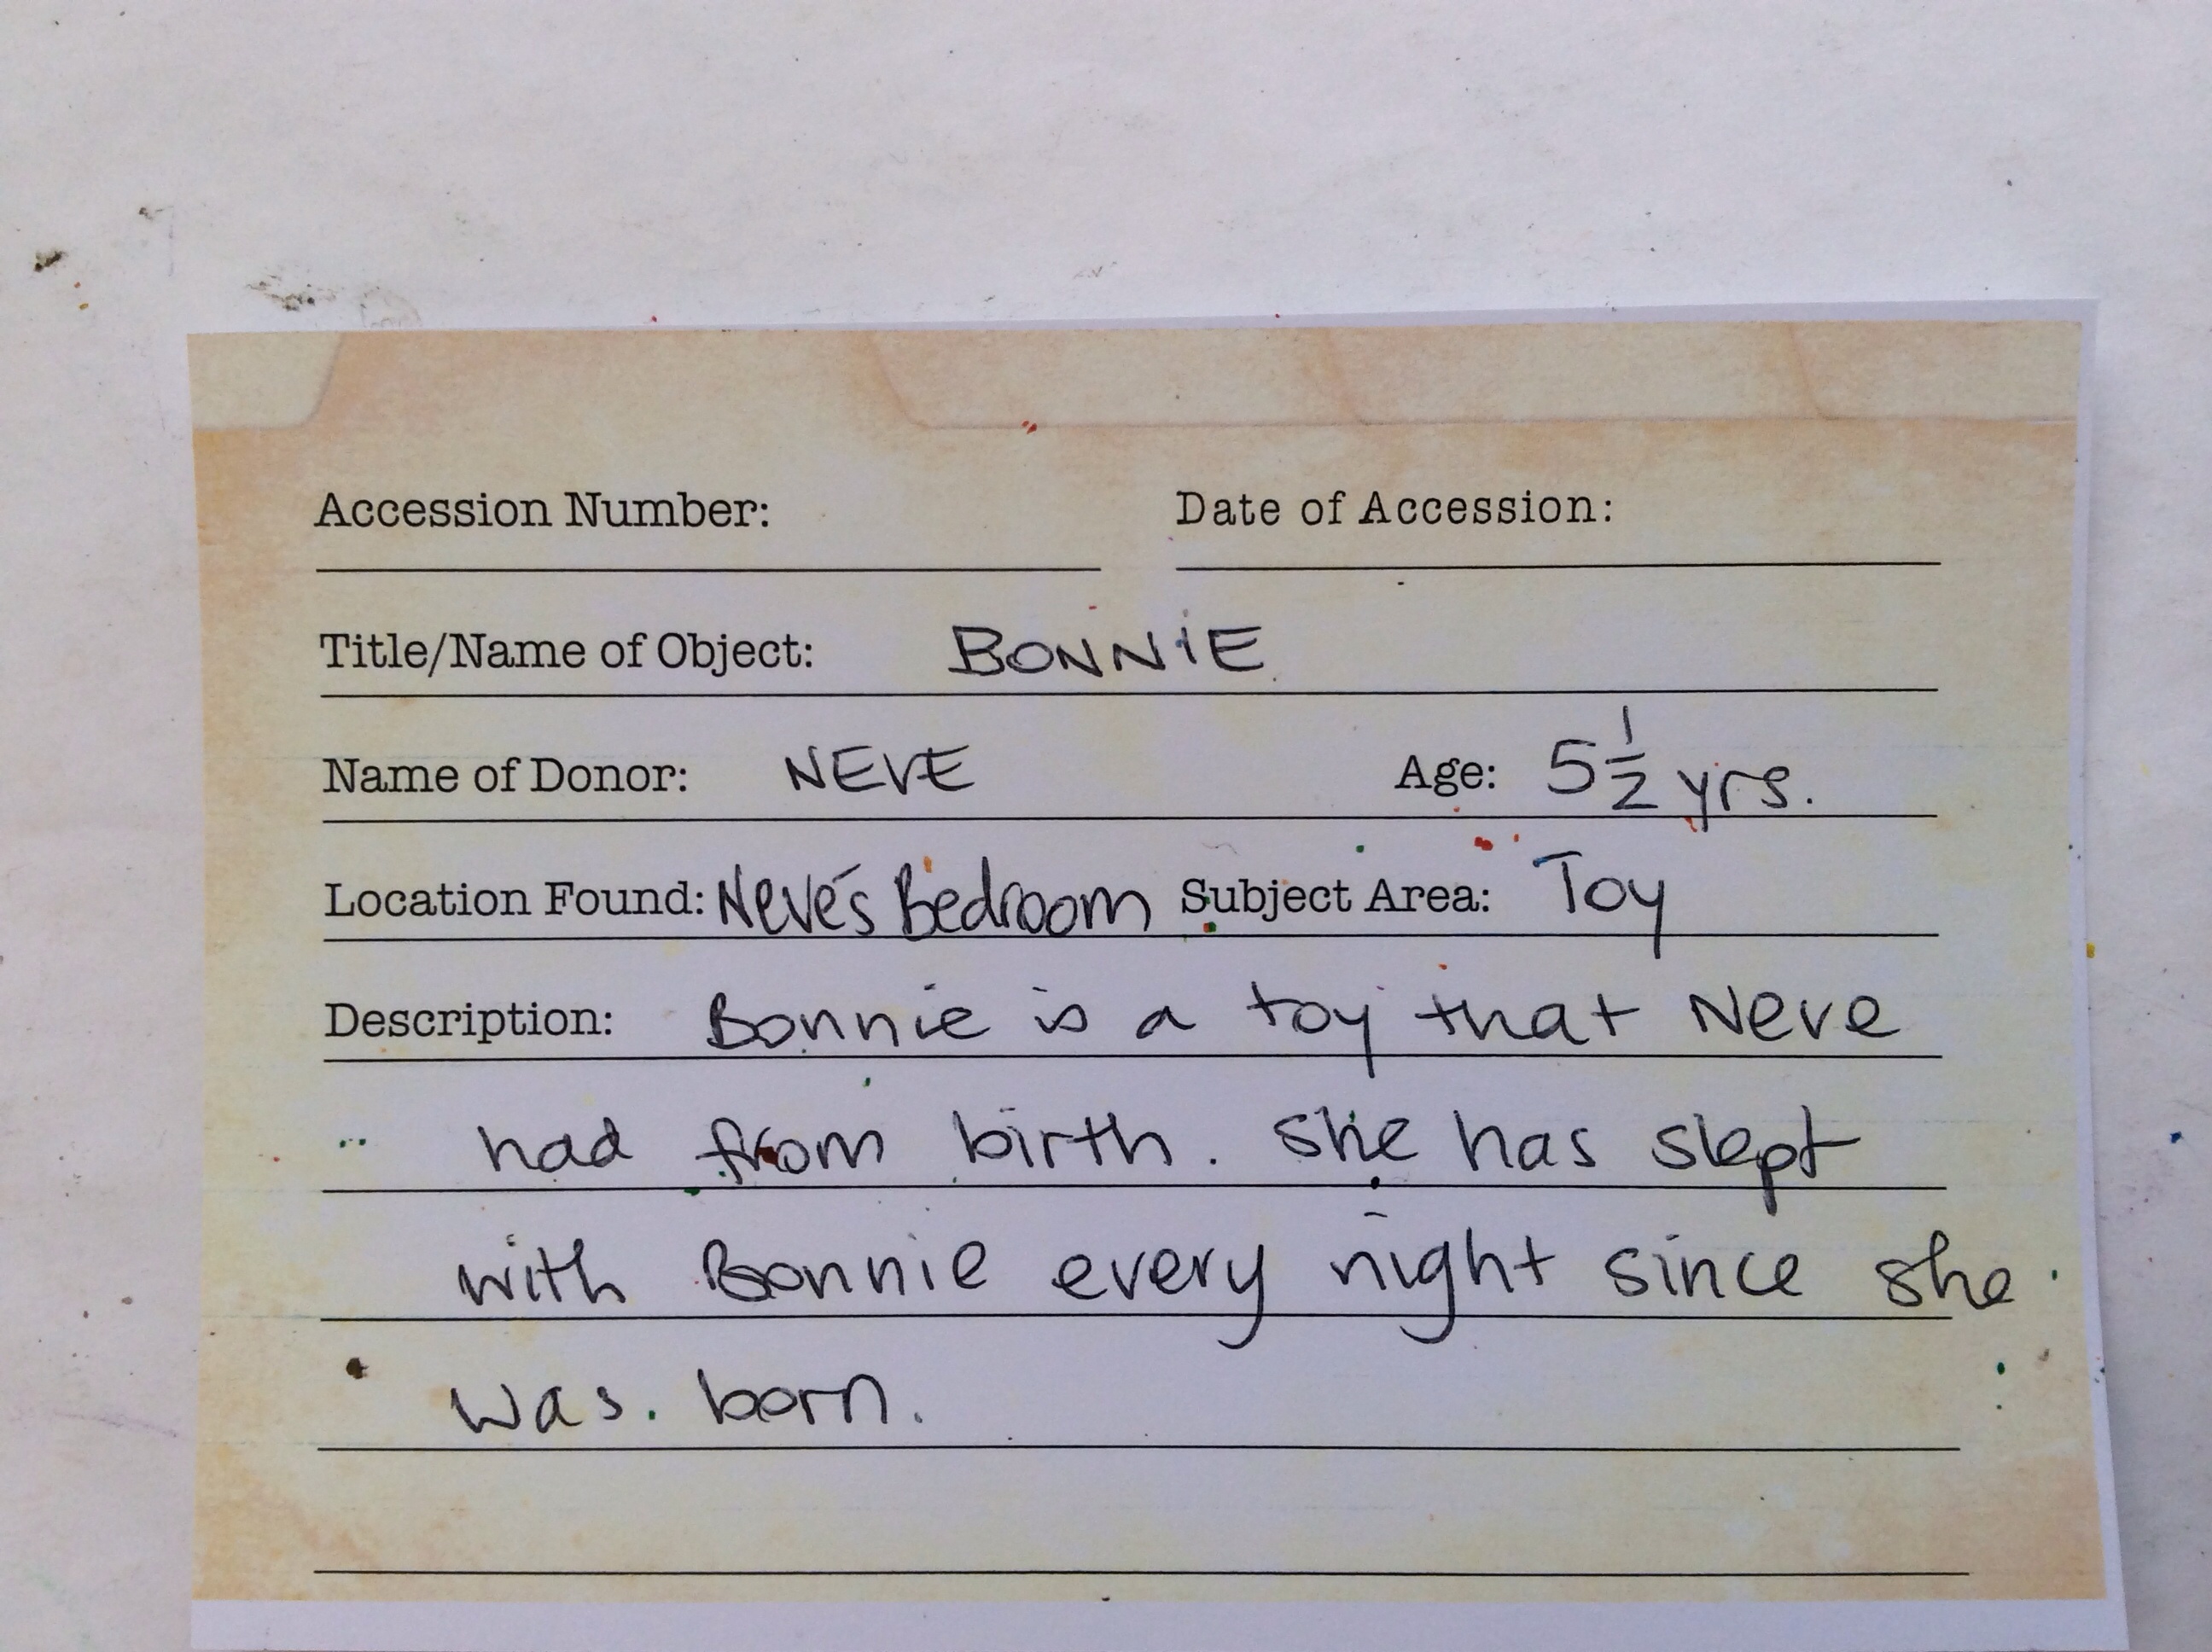 Accession Number: Date of Accession:
Title/Name of Object: BONNiE
Name of Donor: NEVE Age: 5 1/2 yrs.
Location Found: Neve's Bedroom Subject Area: Toy
Description: Bonnie is a toy that Neve
had from birth. she has slept
with Bonnie every night since she
was born.